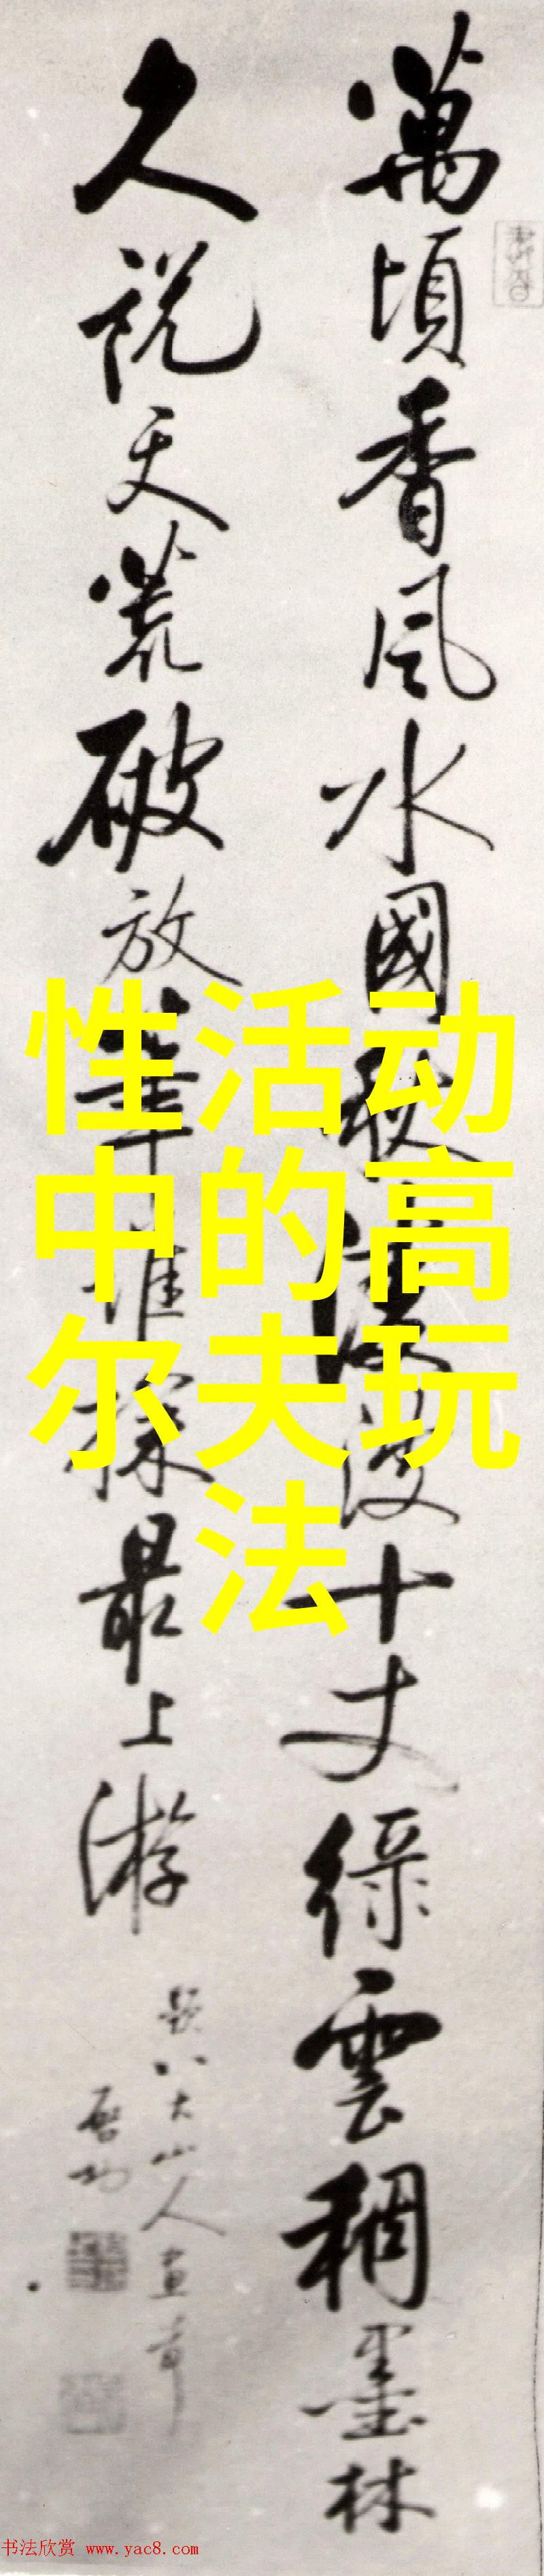 萬頃香風水國秋漫漫十丈綠雲稠墨林
久說天荒破放筆誰探最上游
題八大山人畫卷
启功
性活动
中的高
尔夫玩
法
书法欣赏 www.yac8.com